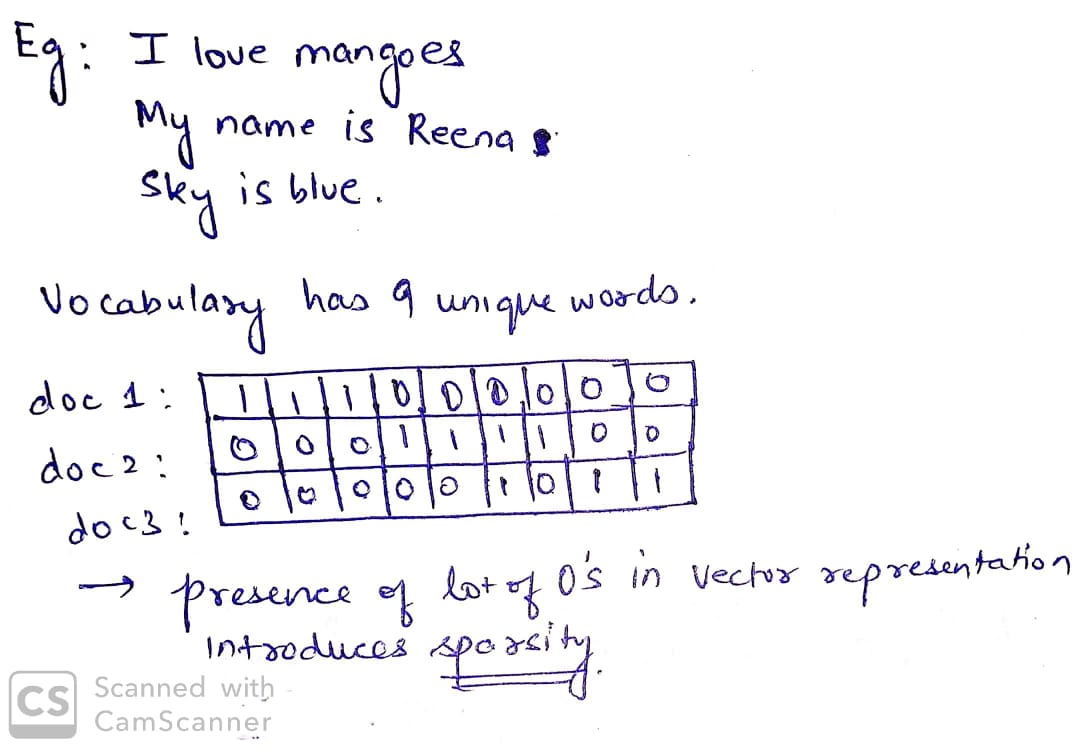 Eg: I love mangoes
My name is Reena
Sky is blue.
Vocabulary has 9 unique words.
doc 1: 1 1 1 0 0 0 0 0 0
doc 2: 0 0 0 1 1 1 1 0 0
doc3: 0 0 0 0 0 1 0 1 1
→ presence of lot of 0's in vector representation
introduces sparsity.
CS Scanned with
CamScanner